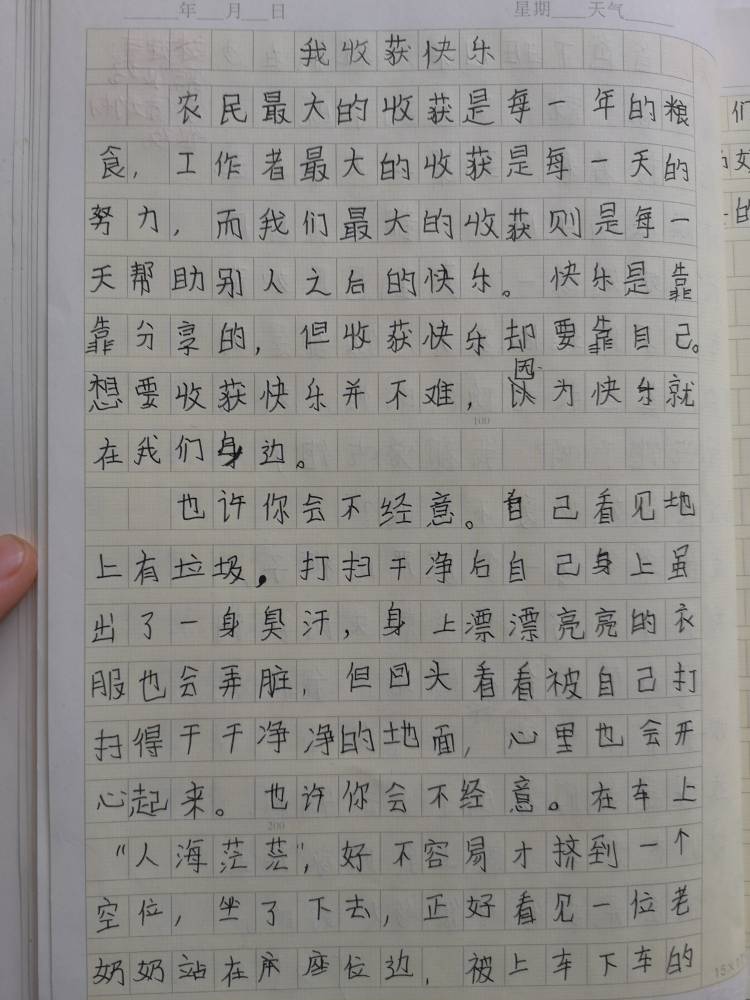 年 月 日 星期 天气
我收获快乐
农民最大的收获是每一年的粮
食，工作者最大的收获是每一天的
努力，而我们最大的收获则是每一
天帮助别人之后的快乐。快乐是靠
靠分享的，但收获快乐却要靠自己。
想要收获快乐并不难，因为快乐就
100
在我们身边。
也许你会不经意。自己看见地
上有垃圾，打扫干净后自己身上虽
出了一身臭汗，身上漂漂亮亮的衣
服也会弄脏，但回头看看被自己打
扫得干干净净的地面，心里也会开
心起来。也许你会不经意。在车上
200
“人海茫茫”，好不容易才挤到一个
空位，坐了下去，正好看见一位老
奶奶站在座位边，被上车下车的